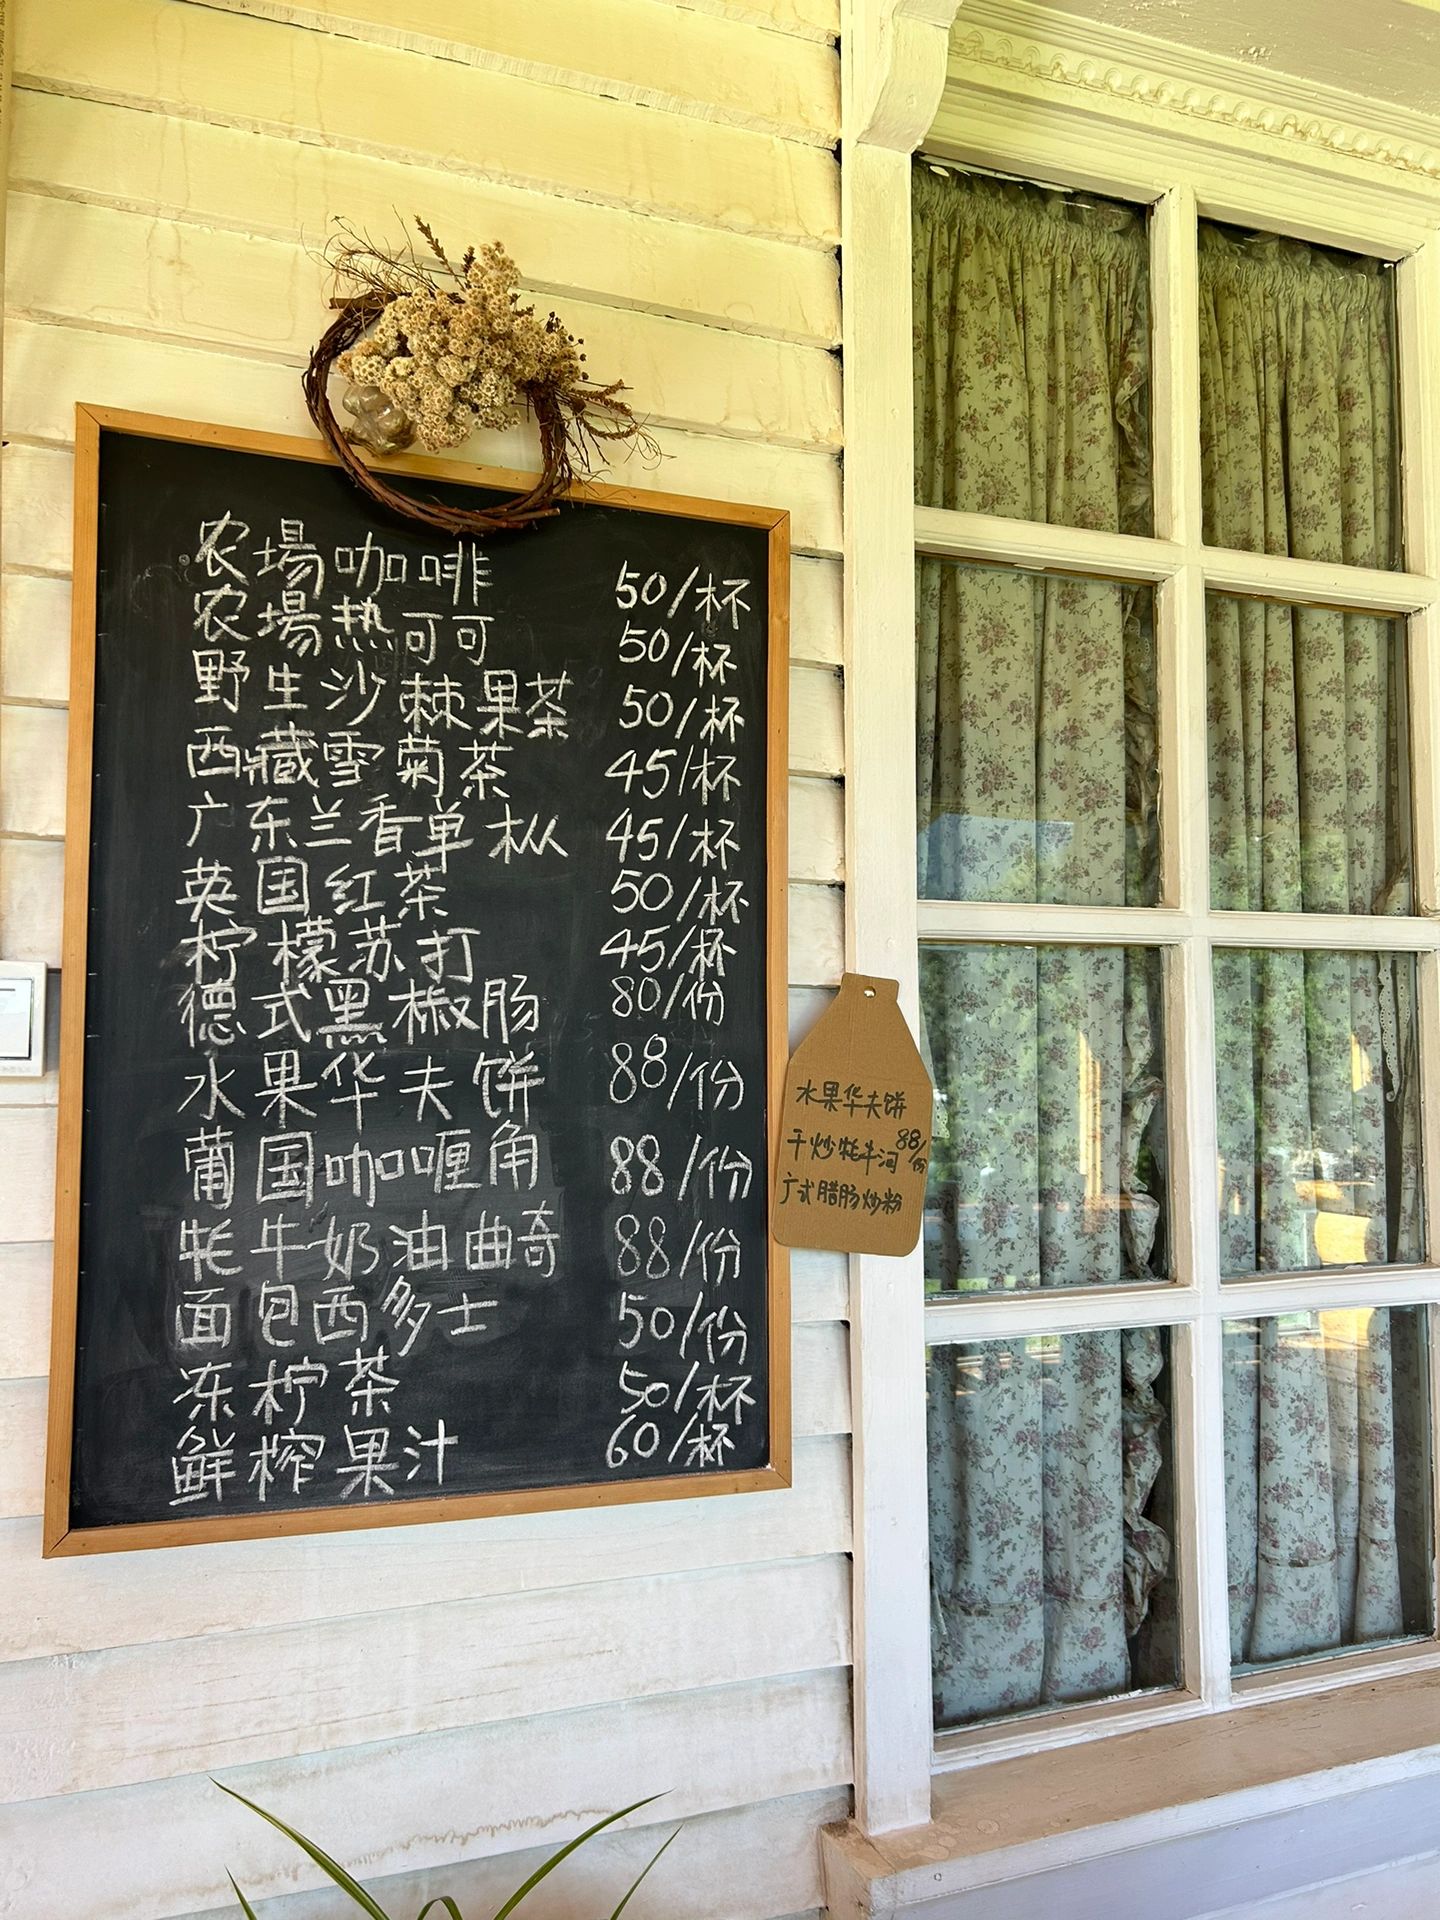 农場咖啡 50/杯
农場热可可 50/杯
野生沙棘果茶 50/杯
西藏雪菊茶 45/杯
广东兰香单枞 45/杯
英国红茶 50/杯
柠檬苏打 45/杯
德式黑椒肠 80/份
水果华夫饼 88/份
葡国咖喱角 88/份
牦牛奶油曲奇 88/份
面包西多士 50/份
冻柠茶 50/杯
鲜榨果汁 60/杯
水果华夫饼
干炒牦牛河 88/份
广式腊肠炒粉